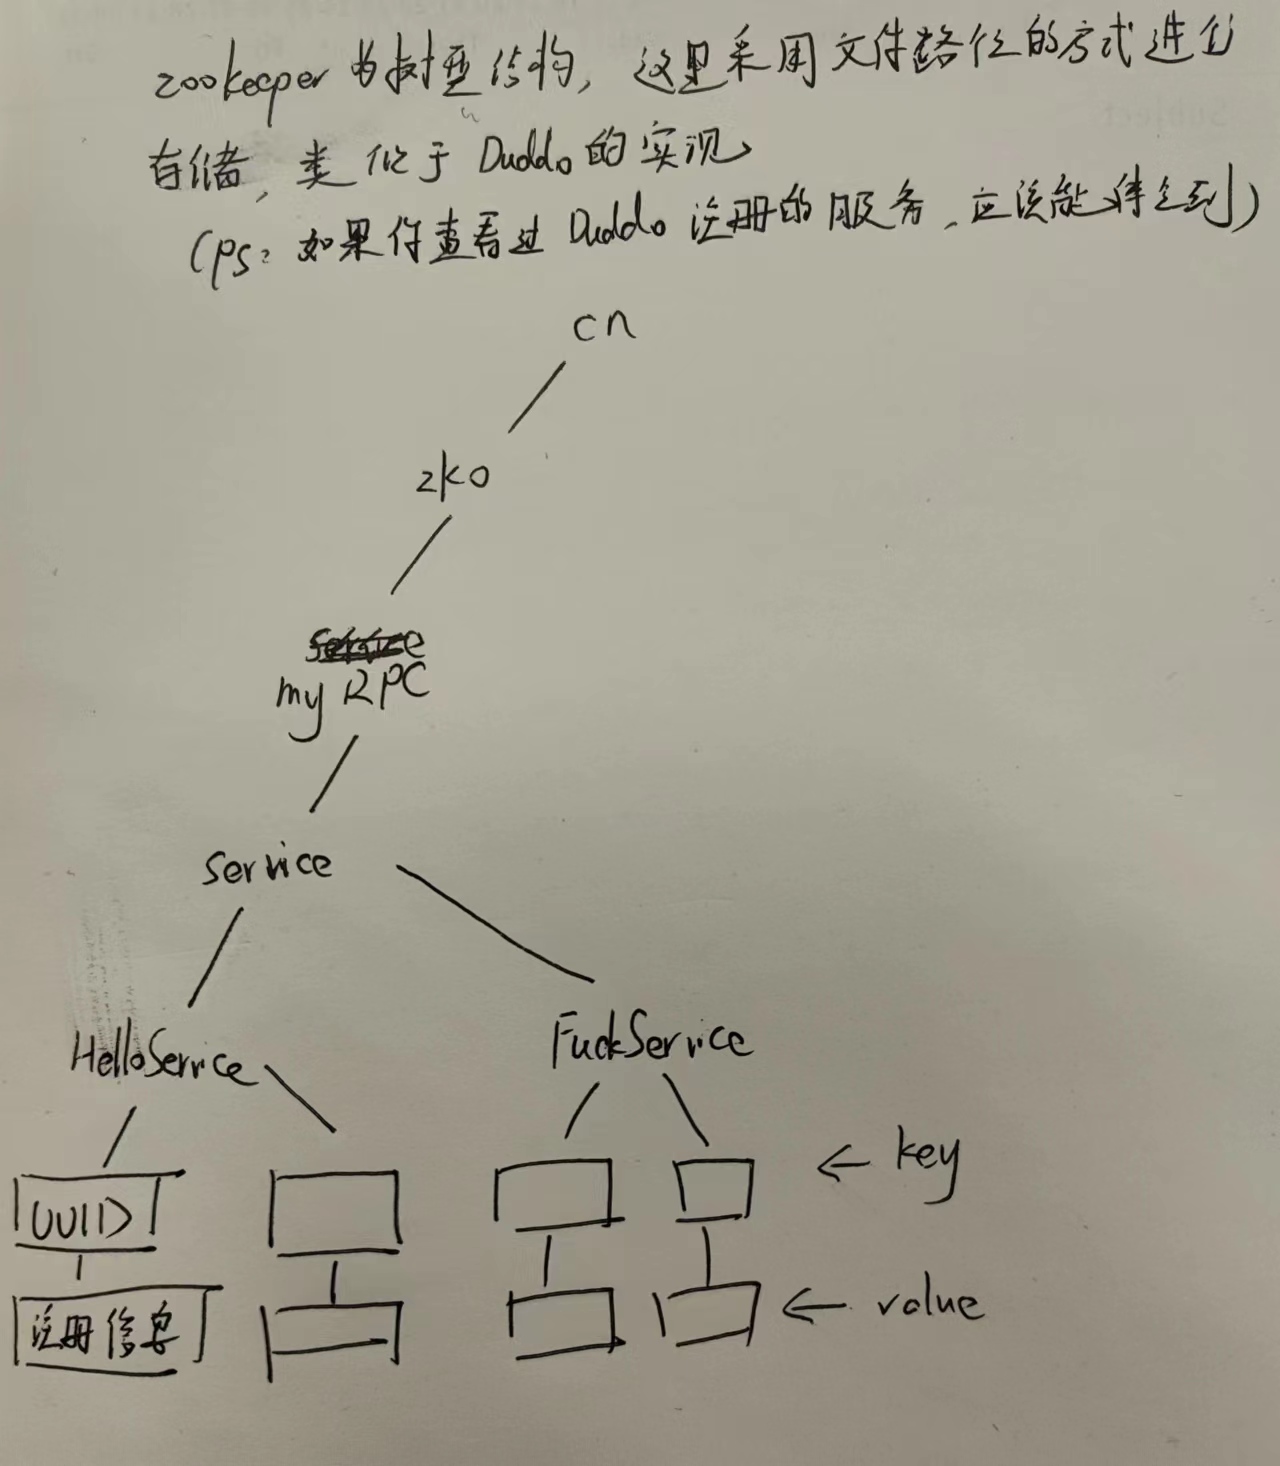 zookeeper为树型结构, 这里采用文件路径的方式进行
存储, 类似于Duddo的实现
(ps: 如果你查看过Duddo注册的服务, 应该能体会到)
cn
zko
service
my RPC
service
HelloService
FuckService
UUID
← key
注册信息
← value